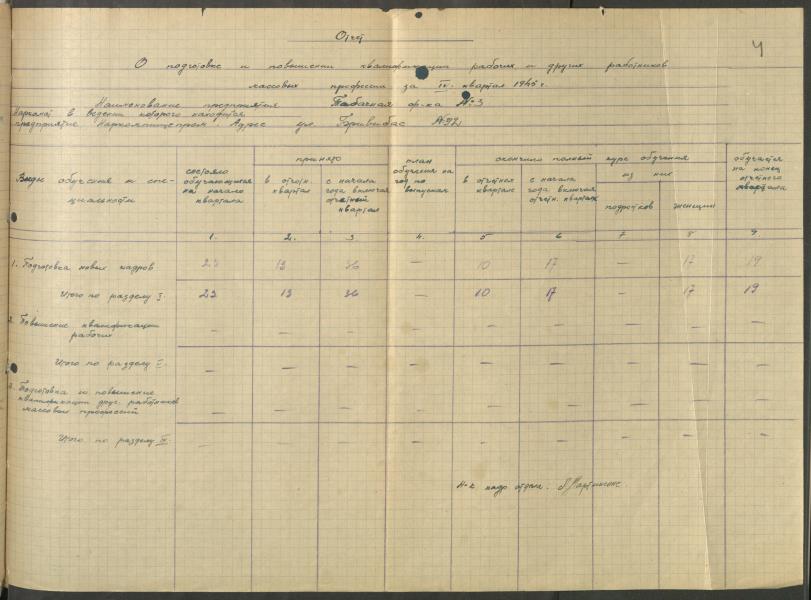 Отчет
4
О подготовке и повышении квалификации рабочих и других работников
массовых профессий за IV. квартал 1945 г.
Наименование предприятия Табачная ф-ка № 3
Наркомат в ведении которого находится
предприятие Наркомпищепром Адрес ул. Бривибас № 92
Виды обучения и спе-
циальности
состояло
обучающихся
на начало
квартала
принято
в отчетн.
квартал
с начала
года включая
отчетный
квартал
план
обучения на
год по
выпускам
окончило полный курс обучения
в отчетном
квартале
с начала
года включая
отчетн. квартал
из них
подростков
женщин
обучается
на конец
отчетного
квартала
1. 2. 3 4. 5 6. 7 8 9.
1. Подготовка новых кадров 23 13 36 — 10 17 — 17 19
Итого по разделу I. 23 13 36 — 10 17 — 17 19
2. Повышение квалификации
рабочих — — — — — — — — —
Итого по разделу II. — — — — — — — — —
3. Подготовка и повышение
квалификации друг. работников
массовых профессий — — — — — — — — —
Итого по разделу III. — — — — — — — — —
Н-к кадр отдела: